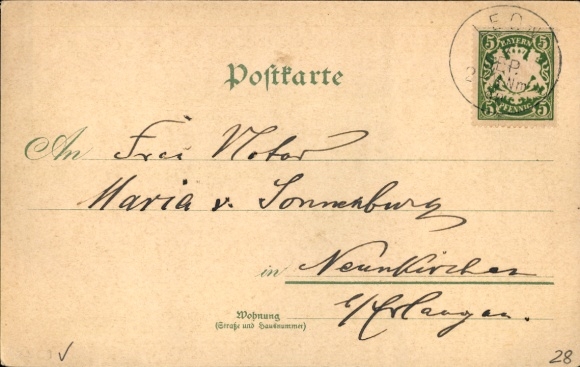 BAYERN
5 5
5 PFENNIG 5
Postkarte
An Frau Notar
Maria v. Sonnenburg
in Neunkirchen
Wohnung
(Straße und Hausnummer)
Erlangen.
28